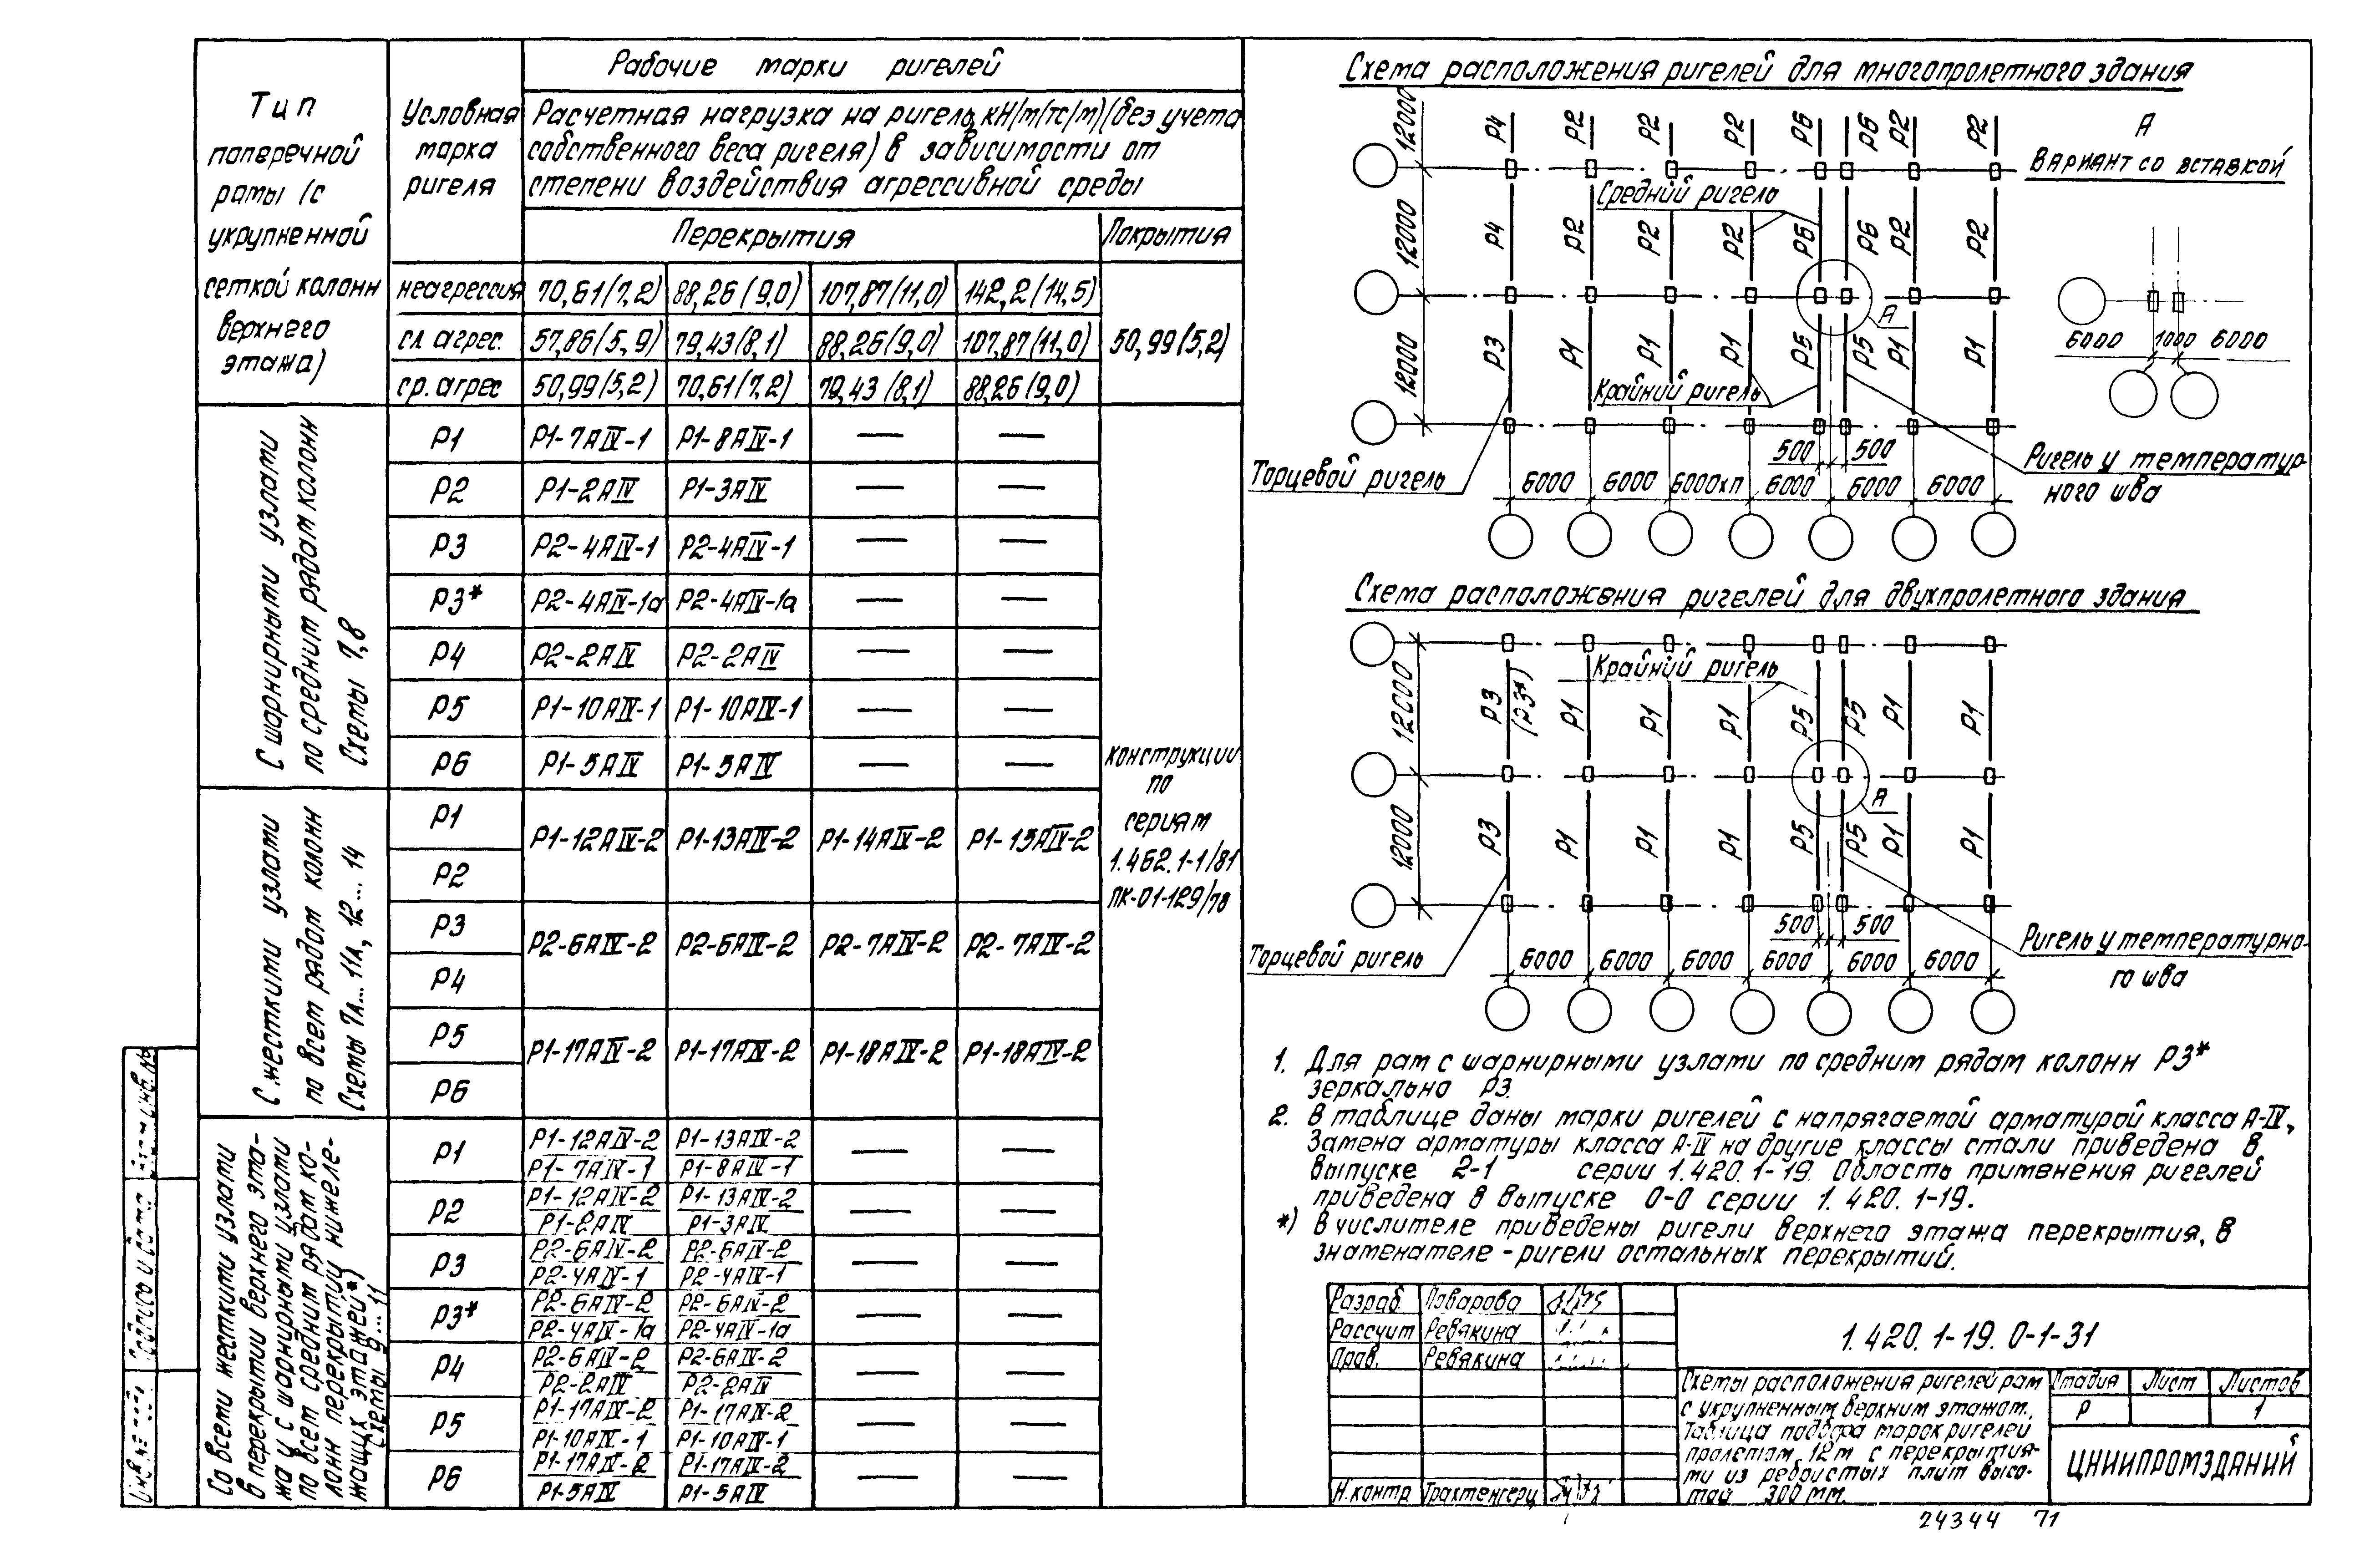 Тип
поперечной
рамы (с
укрупненной
сеткой колонн
верхнего
этажа)
Условная
марка
ригеля
Рабочие марки ригелей
Расчетная нагрузка на ригель, кН/м(тс/м)(без учета
собственного веса ригеля) в зависимости от
степени воздействия агрессивной среды
Перекрытия
Покрытия
неагрессия 70,61(7,2) 88,26(9,0) 107,87(11,0) 142,2(14,5)
сл. агрес. 57,86(5,9) 79,43(8,1) 88,26(9,0) 107,87(11,0) 50,99(5,2)
ср. агрес 50,99(5,2) 70,61(7,2) 79,43(8,1) 88,26(9,0)
С шарнирными узлами
по средним рядам колонн
Схемы 7,8
Р1 Р1-7АIV-1 Р1-8АIV-1 — —
Р2 Р1-2АIV Р1-3АIV — —
Р3 Р2-4АIV-1 Р2-4АIV-1 — —
Р3* Р2-4АIV-1а Р2-4АIV-1а — —
Р4 Р2-2АIV Р2-2АIV — —
Р5 Р1-10АIV-1 Р1-10АIV-1 — —
Р6 Р1-5АIV Р1-5АIV — —
конструкции
по
сериям
1.462.1-1/81
ПК-01-129/78
С жесткими узлами
по всем рядам колонн
Схемы 7А...11А, 12...14
Р1
Р1-12АIV-2 Р1-13АIV-2 Р1-14АIV-2 Р1-15АIV-2
Р2
Р3
Р2-6АIV-2 Р2-6АIV-2 Р2-7АIV-2 Р2-7АIV-2
Р4
Р5
Р1-17АIV-2 Р1-17АIV-2 Р1-18АIV-2 Р1-18АIV-2
Р6
Со всеми жесткими узлами
в перекрытии верхнего эта-
жа и с шарнирными узлами
по всем средним рядам ко-
лонн перекрытий нижеле-
жащих этажей*)
Схемы 9...11
Р1-12АIV-2 Р1-13АIV-2
Р1 — —
Р1-7АIV-1 Р1-8АIV-1
Р1-12АIV-2 Р1-13АIV-2
Р2 — —
Р1-2АIV Р1-3АIV
Р2-6АIV-2 Р2-6АIV-2
Р3 — —
Р2-4АIV-1 Р2-4АIV-1
Р2-6АIV-2 Р2-6АIV-2
Р3* — —
Р2-4АIV-1а Р2-4АIV-1а
Р2-6АIV-2 Р2-6АIV-2
Р4 — —
Р2-2АIV Р2-2АIV
Р1-17АIV-2 Р1-17АIV-2
Р5 — —
Р1-10АIV-1 Р1-10АIV-1
Р1-17АIV-2 Р1-17АIV-2
Р6 — —
Р1-5АIV Р1-5АIV
Схема расположения ригелей для многопролетного здания
12000 Р4 Р2 Р2 Р2 Р6 Р6 Р2 Р2
А
Вариант со вставкой
Средний ригель
12000 Р4 Р2 Р2 Р2 Р6 Р6 Р2 Р2
А
12000 Р3 Р1 Р1 Р1 Р5 Р5 Р1 Р1
6000 1000 6000
Крайний ригель
500 500
Торцевой ригель
Ригель у температур-
ного шва
6000 6000 6000хп 6000 6000 6000
Схема расположения ригелей для двухпролетного здания
Крайний ригель
12000 Р3 (Р3*) Р1 Р1 Р1 Р5 Р5 Р1 Р1
А
12000 Р3 Р1 Р1 Р1 Р5 Р5 Р1 Р1
500 500
Торцевой ригель
Ригель у температурно-
го шва
6000 6000 6000 6000 6000 6000
1. Для рам с шарнирными узлами по средним рядам колонн Р3*
зеркально Р3.
2. В таблице даны марки ригелей с напрягаемой арматурой класса А-IV,
Замена арматуры класса А-IV на другие классы стали приведена в
выпуске 2-1 серии 1.420.1-19. Область применения ригелей
приведена в выпуске 0-0 серии 1.420.1-19.
*) В числителе приведены ригели верхнего этажа перекрытия, в
знаменателе - ригели остальных перекрытий.
Разраб. Поварова
Рассчит Ревякина
Пров. Ревякина
Н.контр Трахтенгерц
1.420.1-19. 0-1-31
Схемы расположения ригелей рам
с укрупненным верхним этажом.
Таблица подбора марок ригелей
пролетом 12м с перекрытия-
ми из ребристых плит высо-
той 300 мм.
Стадия Лист Листов
Р 1
ЦНИИПРОМЗДАНИЙ
Подпись и дата
24344 71